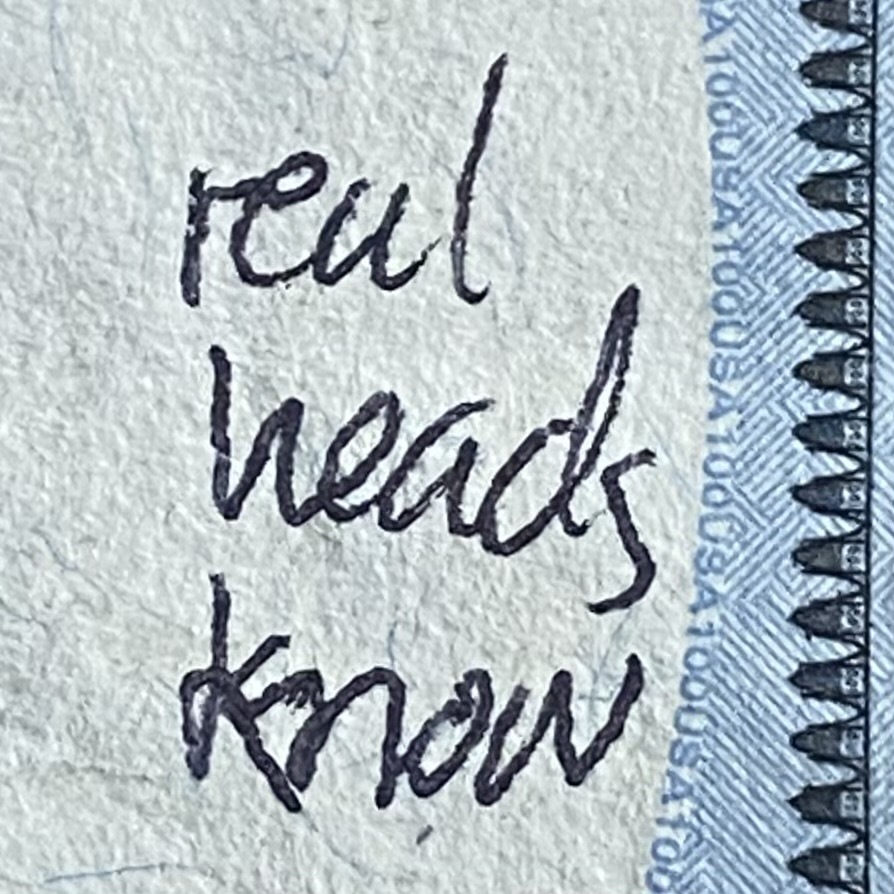 real
heads
know
USA100USA100USA100USA100USA100USA100